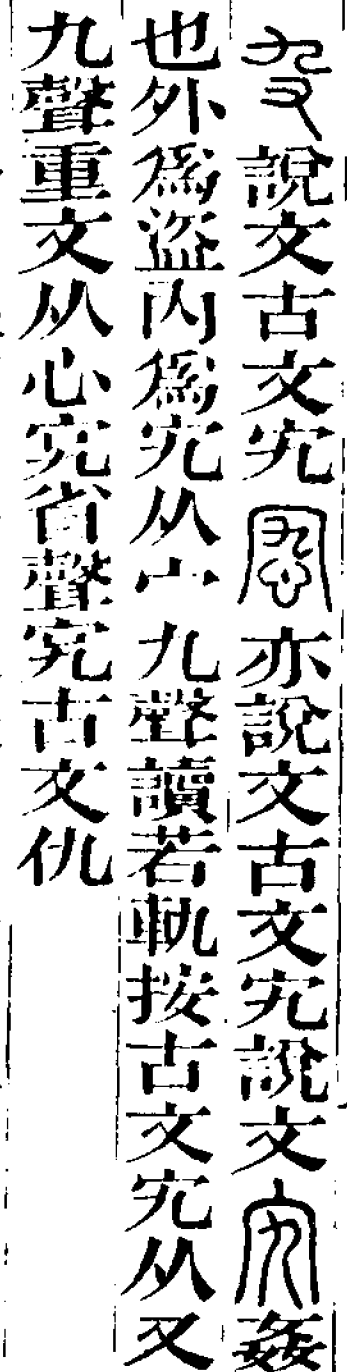 說文古文宄亦說文古文宄說文宄姦
也外爲盜內爲宄从宀九聲讀若軌按古文宄从又
九聲重文从心究省聲究古文仇